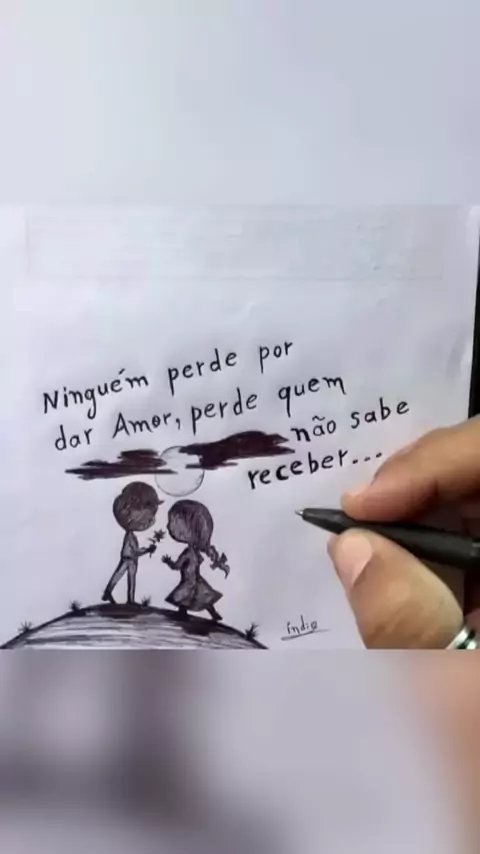 Ninguém perde por
dar Amor, perde quem
não sabe
receber...
índio